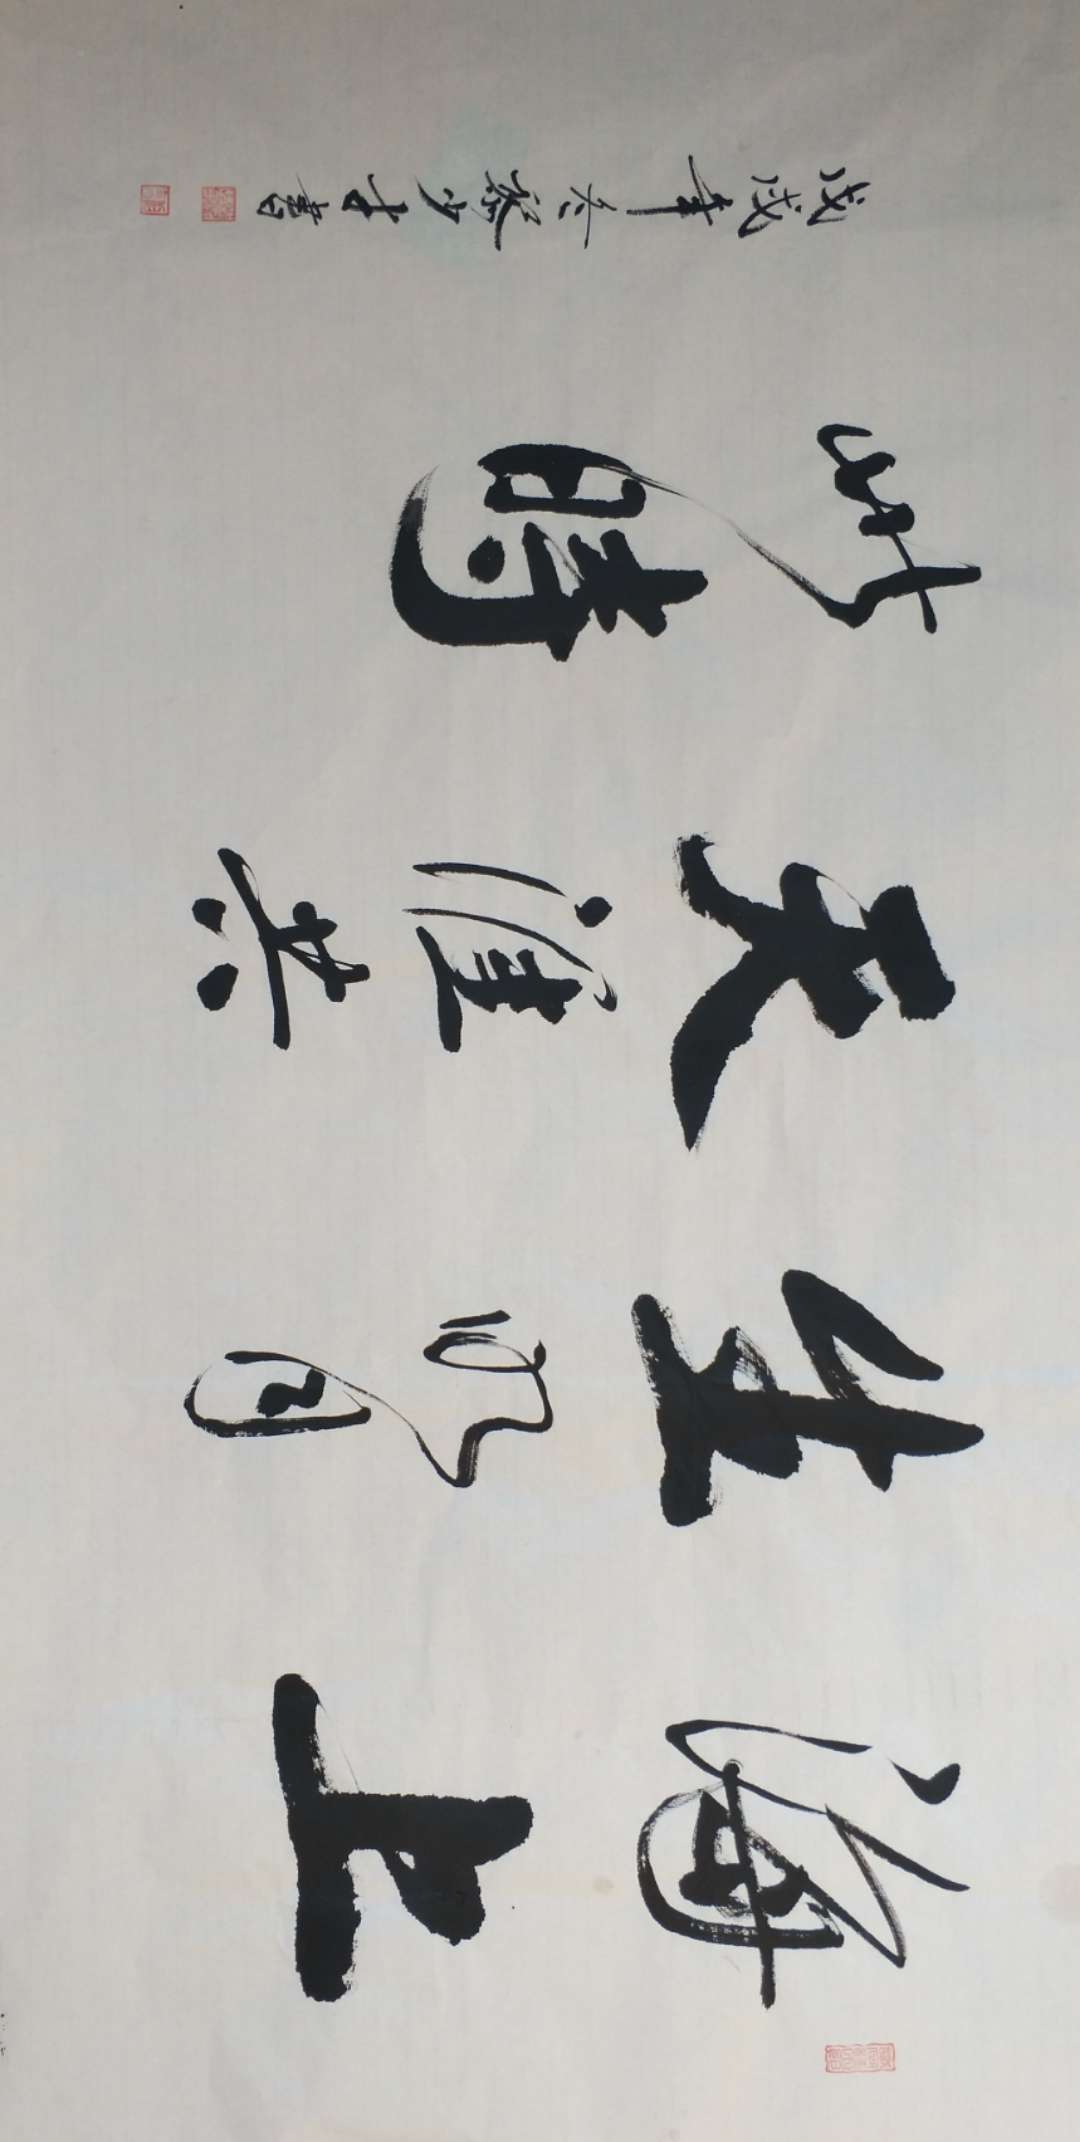 海上
生明月
天涯共
此時
戊戌年冬 少 書